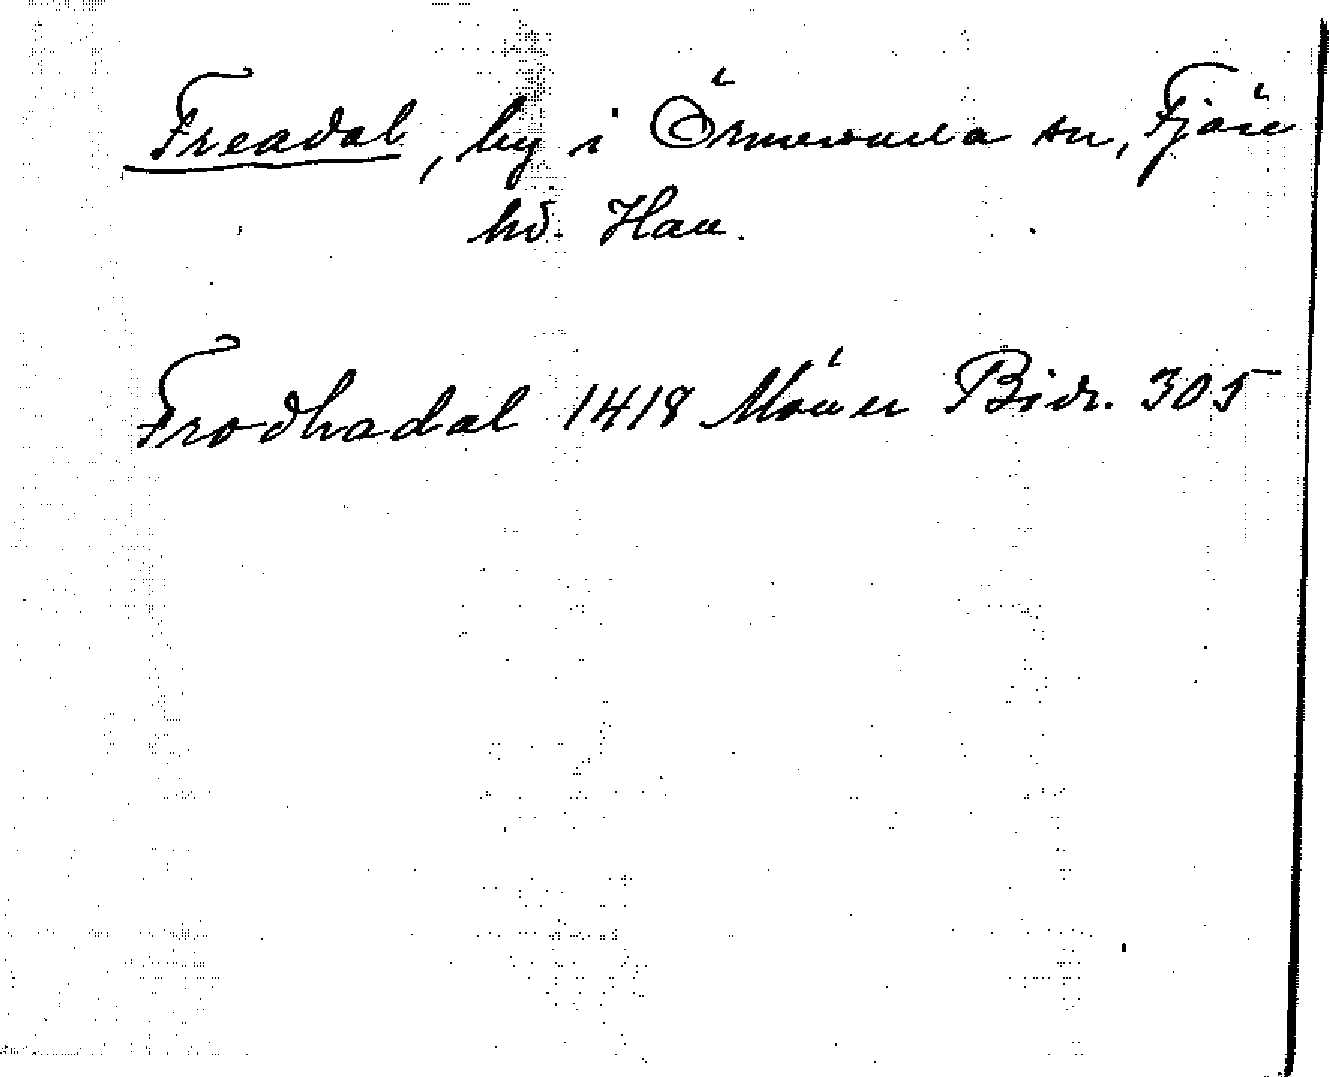 Freadal, by i Örmevalla sn, Fjäre
hd. Hall.
Frodhadal 1418 Möller Bidr. 305